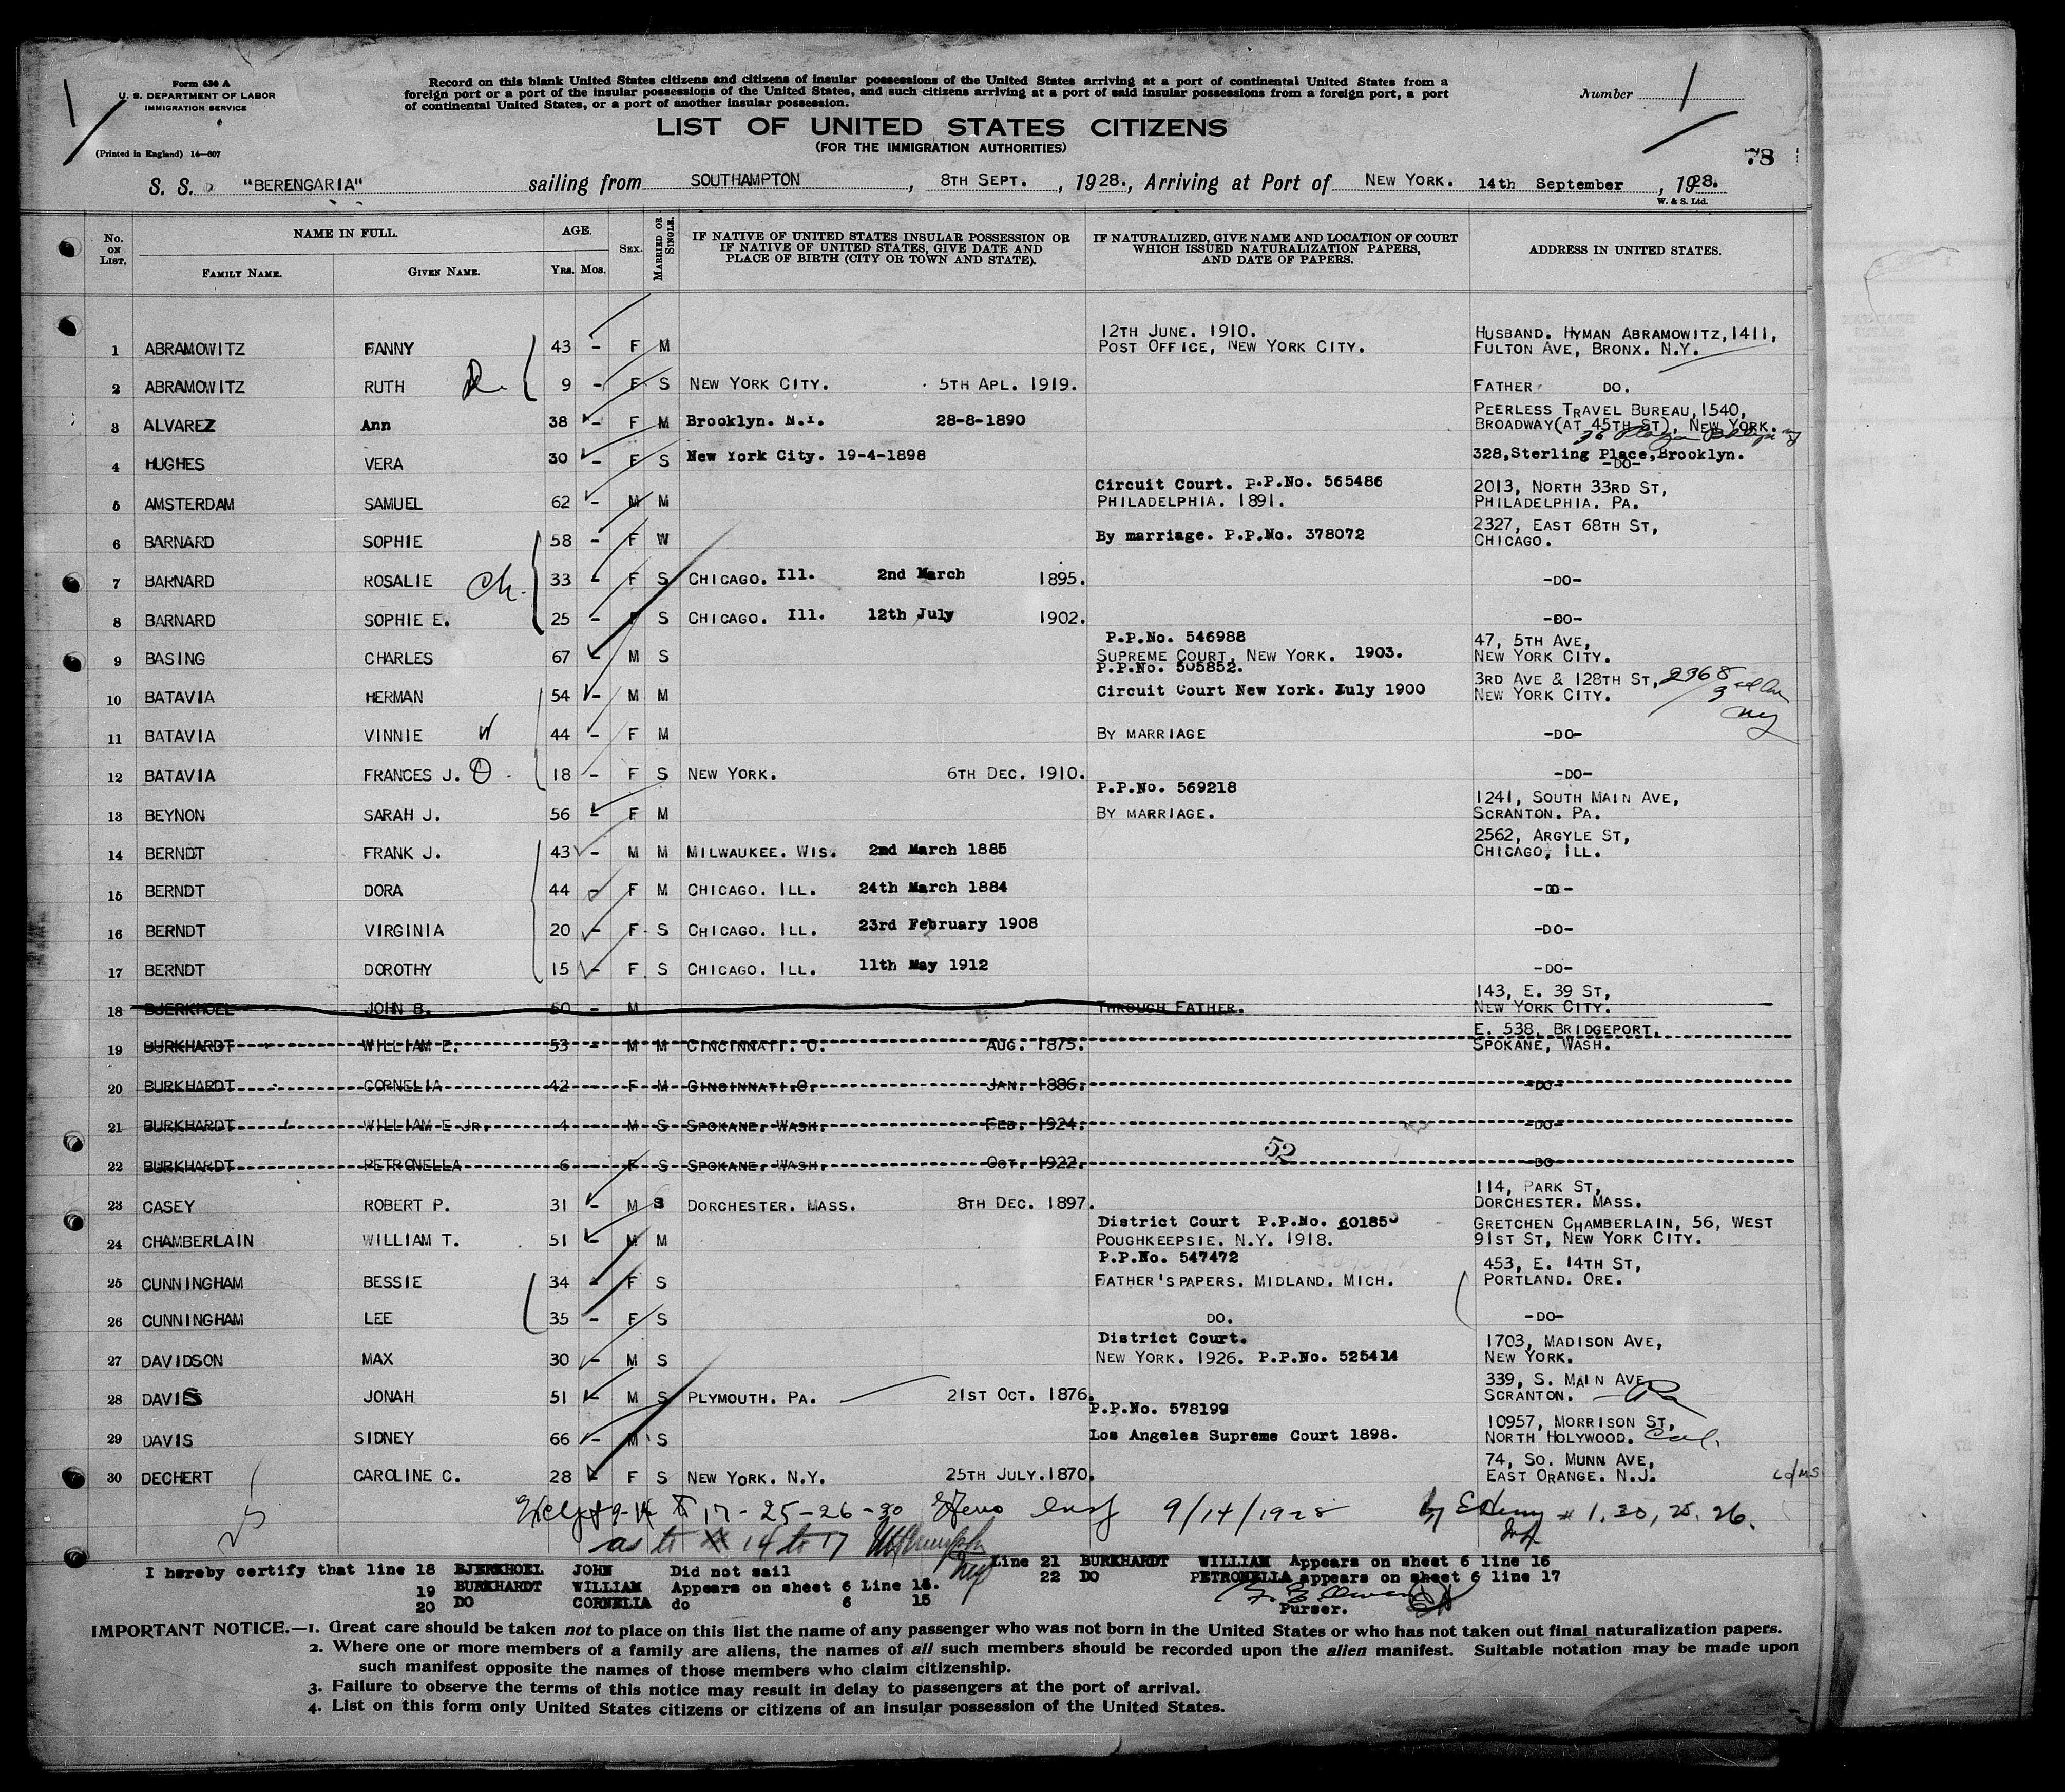 Form 630 A
U. S. DEPARTMENT OF LABOR
IMMIGRATION SERVICE
(Printed in England) 14—607
Record on this blank United States citizens and citizens of insular possessions of the United States arriving at a port of continental United States from a
foreign port or a port of the insular possessions of the United States, and such citizens arriving at a port of said insular possessions from a foreign port, a port
of continental United States, or a port of another insular possession.
Number 1
LIST OF UNITED STATES CITIZENS
(FOR THE IMMIGRATION AUTHORITIES)
78
S. S. "BERENGARIA" sailing from SOUTHAMPTON, 8TH SEPT., 1928., Arriving at Port of NEW YORK. 14th September, 1928.
W. & S. Ltd.
No. ON LIST. NAME IN FULL. FAMILY NAME. GIVEN NAME. AGE. YRS. MOS. SEX. MARRIED OR SINGLE. IF NATIVE OF UNITED STATES INSULAR POSSESSION OR IF NATIVE OF UNITED STATES, GIVE DATE AND PLACE OF BIRTH (CITY OR TOWN AND STATE). IF NATURALIZED, GIVE NAME AND LOCATION OF COURT WHICH ISSUED NATURALIZATION PAPERS, AND DATE OF PAPERS. ADDRESS IN UNITED STATES.
1 ABRAMOWITZ FANNY 43 - F M 12TH JUNE. 1910. POST OFFICE, NEW YORK CITY. HUSBAND. HYMAN ABRAMOWITZ, 1411, FULTON AVE, BRONX. N.Y.
2 ABRAMOWITZ RUTH 9 - F S NEW YORK CITY. 5TH APL. 1919. FATHER DO.
3 ALVAREZ Ann 38 - F M Brooklyn. N.Y. 28-8-1890 PEERLESS TRAVEL BUREAU, 1540, BROADWAY(AT 45TH ST), NEW YORK.
4 HUGHES VERA 30 - F S New York City. 19-4-1898 328, Sterling Place, Brooklyn. -DO-
5 AMSTERDAM SAMUEL 62 - M M Circuit Court. P.P.No. 565486 PHILADELPHIA. 1891. 2013, NORTH 33RD ST, PHILADELPHIA. PA.
6 BARNARD SOPHIE 58 - F W By marriage. P.P.No. 378072 2327, EAST 68TH ST, CHICAGO.
7 BARNARD ROSALIE Ch. 33 - F S CHICAGO. Ill. 2nd March 1895. -DO-
8 BARNARD SOPHIE E. 25 - F S CHICAGO. Ill. 12th July 1902. -DO-
9 BASING CHARLES 67 - M S P.P.No. 546988 SUPREME COURT, NEW YORK. 1903. 47, 5TH AVE, NEW YORK CITY.
10 BATAVIA HERMAN 54 - M M P.P.No. 505852. Circuit Court New York. July 1900 3RD AVE & 128TH ST, NEW YORK CITY. 2368 3rd Ave NY
11 BATAVIA VINNIE W 44 - F M BY MARRIAGE -DO-
12 BATAVIA FRANCES J. D 18 - F S NEW YORK. 6TH DEC. 1910. -DO-
13 BEYNON SARAH J. 56 F M P.P.No. 569218 BY MARRIAGE. 1241, SOUTH MAIN AVE, SCRANTON. PA.
14 BERNDT FRANK J. 43 - M M MILWAUKEE. WIS. 2nd March 1885 2562, ARGYLE ST, CHICAGO, ILL.
15 BERNDT DORA 44 - F M CHICAGO. ILL. 24th March 1884 -DO-
16 BERNDT VIRGINIA 20 - F S CHICAGO. ILL. 23rd February 1908 -DO-
17 BERNDT DOROTHY 15 - F S CHICAGO. ILL. 11th May 1912 -DO-
18 BJERKHOEL JOHN B. 50 - M THROUGH FATHER. 143, E. 39 ST, NEW YORK CITY.
19 BURKHARDT WILLIAM E. 53 - M M CINCINNATI. O. AUG. 1875. E. 538, BRIDGEPORT, SPOKANE, WASH.
20 BURKHARDT CORNELIA 42 - F M CINCINNATI.O. JAN. 1886. -DO-
21 BURKHARDT WILLIAM E JR. 4 - M S SPOKANE, WASH. FEB. 1924. -DO-
52
22 BURKHARDT PETRONELLA 6 - F S SPOKANE, WASH. OCT. 1922. -DO-
23 CASEY ROBERT P. 31 - M S DORCHESTER. MASS. 8TH DEC. 1897. 114, PARK ST, DORCHESTER. MASS.
24 CHAMBERLAIN WILLIAM T. 51 - M M District Court P.P.No. 601850 POUGHKEEPSIE. N.Y. 1918. GRETCHEN CHAMBERLAIN, 56, WEST 91ST ST, NEW YORK CITY.
25 CUNNINGHAM BESSIE 34 - F S P.P.No. 547472 FATHER'S PAPERS. MIDLAND. MICH. 453, E. 14TH ST, PORTLAND. ORE.
26 CUNNINGHAM LEE 35 - F S DO. -DO-
27 DAVIDSON MAX 30 - M S District Court. NEW YORK. 1926. P.P.No. 525414 1703, MADISON AVE, NEW YORK.
28 DAVIES JONAH 51 - M S PLYMOUTH. PA. 21ST OCT. 1876. 339, S. MAIN AVE SCRANTON. Pa
29 DAVIS SIDNEY 66 - M S P.P.No. 578199 Los Angeles Supreme Court 1898. 10957, MORRISON ST, NORTH HOLYWOOD. Cal.
30 DECHERT CAROLINE C. 28 - F S NEW YORK. N.Y. 25TH JULY. 1870. 74, SO. MUNN AVE, EAST ORANGE. N.J.
17 - 25 - 26 - 30 9/14/1928 # 1. 30, 25. 26.
as to 14 to 17
I hereby certify that line 18 BJERKHOEL JOHN Did not sail
19 BURKHARDT WILLIAM Appears on sheet 6 Line 14.
20 DO CORNELIA do 6 15
Line 21 BURKHARDT WILLIAM Appears on sheet 6 line 16
22 DO PETRONELLA appears on sheet 6 line 17
Purser.
IMPORTANT NOTICE.—1. Great care should be taken not to place on this list the name of any passenger who was not born in the United States or who has not taken out final naturalization papers.
2. Where one or more members of a family are aliens, the names of all such members should be recorded upon the alien manifest. Suitable notation may be made upon
such manifest opposite the names of those members who claim citizenship.
3. Failure to observe the terms of this notice may result in delay to passengers at the port of arrival.
4. List on this form only United States citizens or citizens of an insular possession of the United States.